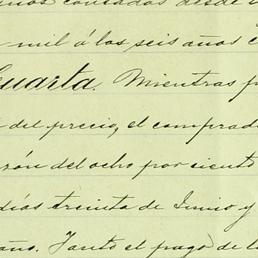 contados desde
mil á los seis años
Cuarta. Mientras
del precio, el comprad
rón del ocho por siento
días treinta de Junio y
año. Tanto el pago de